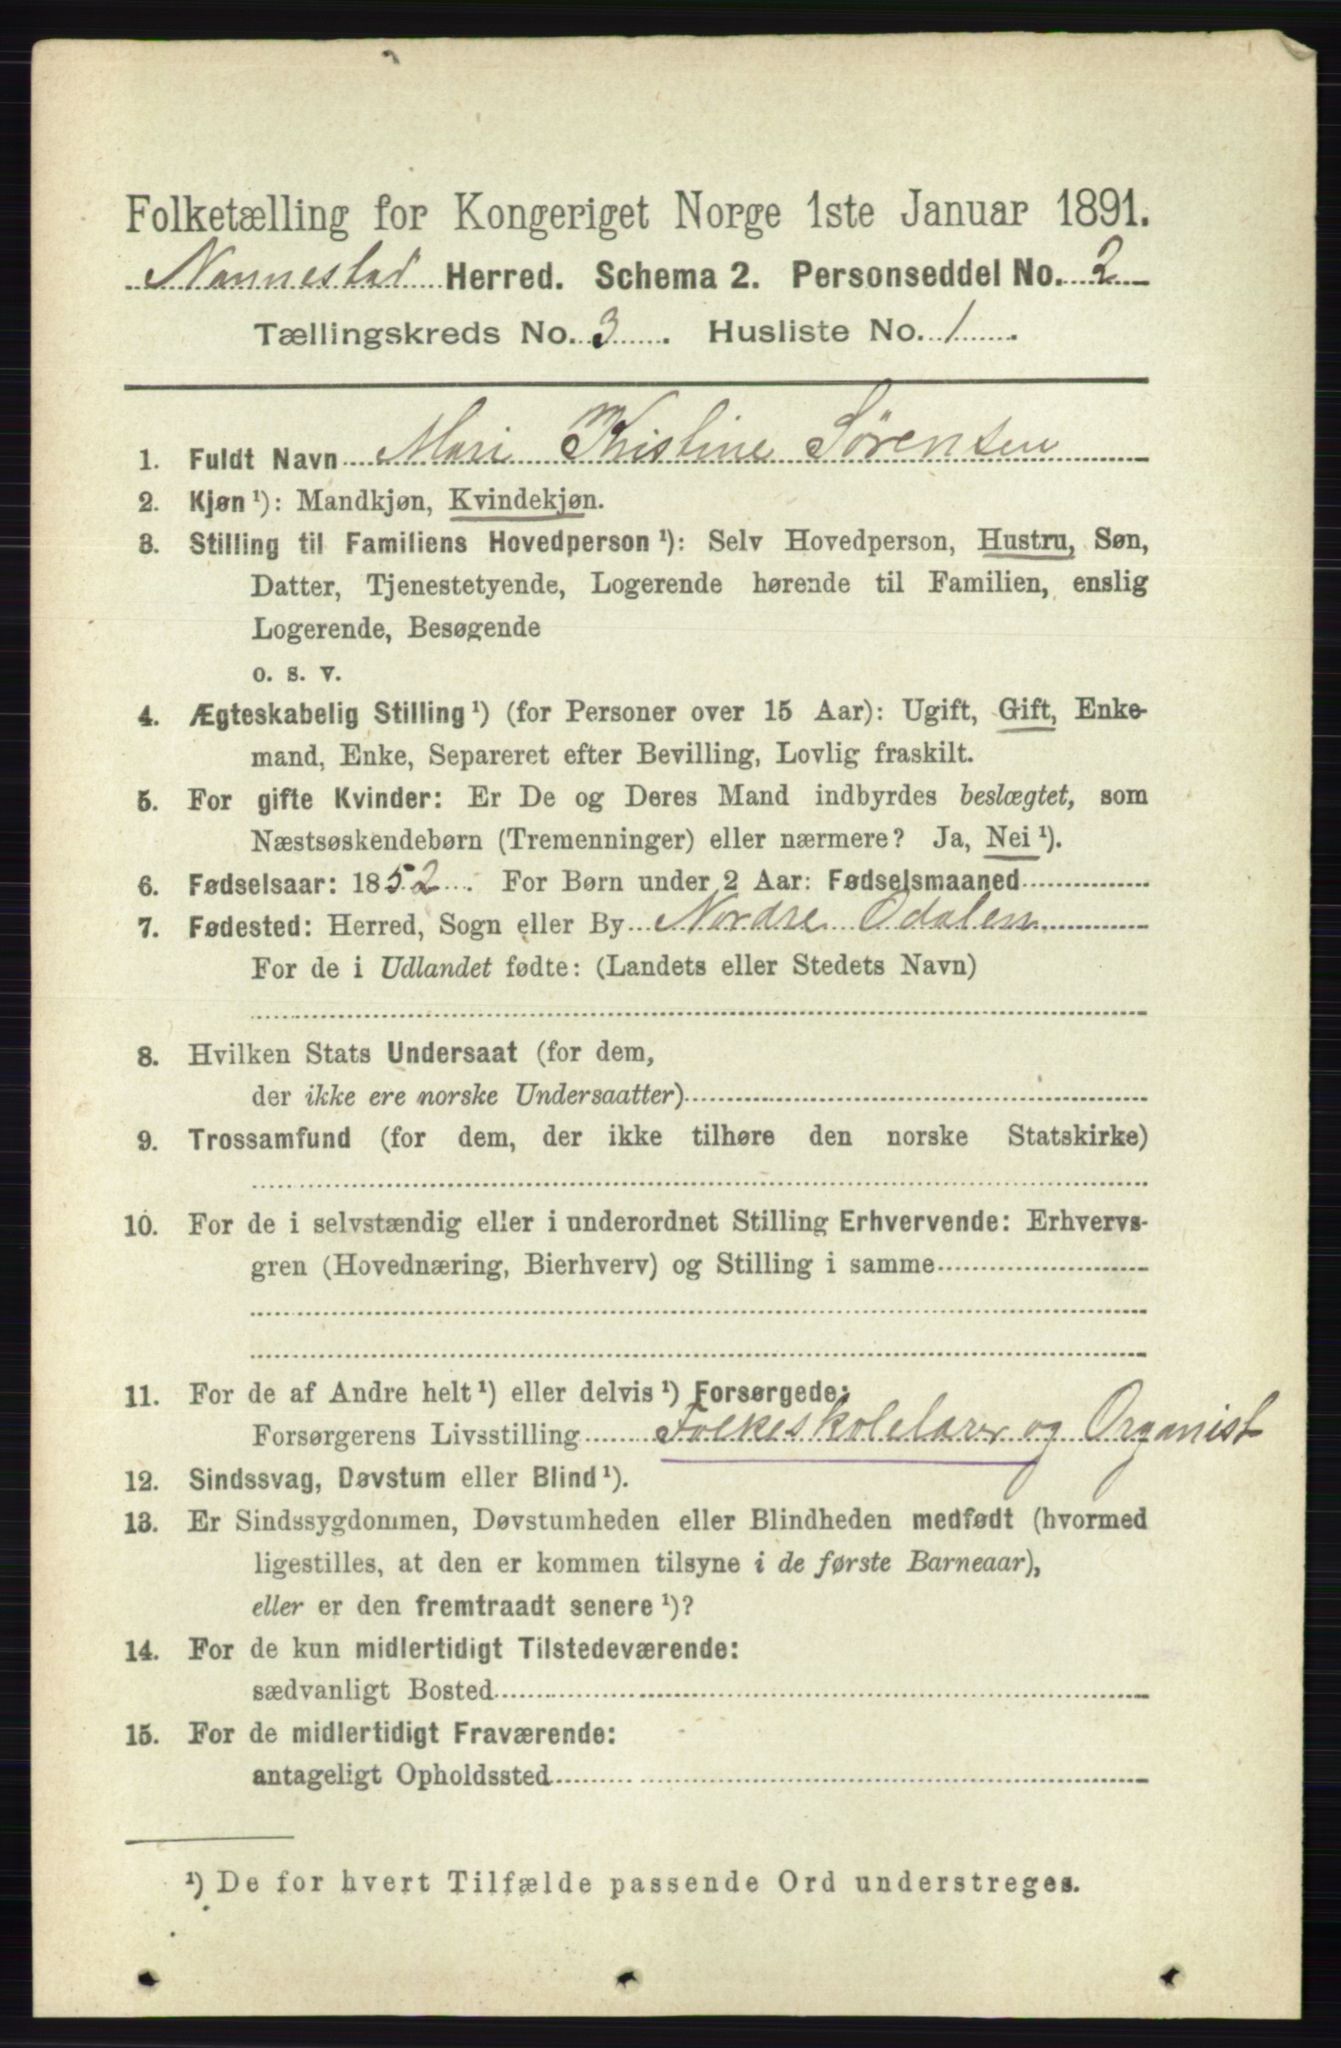 Folketælling for Kongeriget Norge 1ste Januar 1891.
Nannestad Herred. Schema 2. Personseddel No. 2
Tællingskreds No. 3. Husliste No. 1.
1. Fuldt Navn Mari Kristine Sørensen
2. Kjøn ¹): Mandkjøn, Kvindekjøn.
3. Stilling til Familiens Hovedperson ¹): Selv Hovedperson, Hustru, Søn,
Datter, Tjenestetyende, Logerende hørende til Familien, enslig
Logerende, Besøgende
o. s. v.
4. Ægteskabelig Stilling ¹) (for Personer over 15 Aar): Ugift, Gift, Enke-
mand, Enke, Separeret efter Bevilling, Lovlig fraskilt.
5. For gifte Kvinder: Er De og Deres Mand indbyrdes beslægtet, som
Næstsøskendebørn (Tremenninger) eller nærmere? Ja, Nei ¹).
6. Fødselsaar: 1852. For Børn under 2 Aar: Fødselsmaaned
7. Fødested: Herred, Sogn eller By Nordre Odalen
For de i Udlandet fødte: (Landets eller Stedets Navn)
8. Hvilken Stats Undersaat (for dem,
der ikke ere norske Undersaatter)
9. Trossamfund (for dem, der ikke tilhøre den norske Statskirke)
10. For de i selvstændig eller i underordnet Stilling Erhvervende: Erhvervs-
gren (Hovednæring, Bierhverv) og Stilling i samme
11. For de af Andre helt ¹) eller delvis ¹) Forsørgede:
Forsørgerens Livsstilling Folkeskolelærer og Organist
12. Sindssvag, Døvstum eller Blind ¹).
13. Er Sindssygdommen, Døvstumheden eller Blindheden medfødt (hvormed
ligestilles, at den er kommen tilsyne i de første Barneaar),
eller er den fremtraadt senere ¹)?
14. For de kun midlertidigt Tilstedeværende:
sædvanligt Bosted
15. For de midlertidigt Fraværende:
antageligt Opholdssted
¹) De for hvert Tilfælde passende Ord understreges.